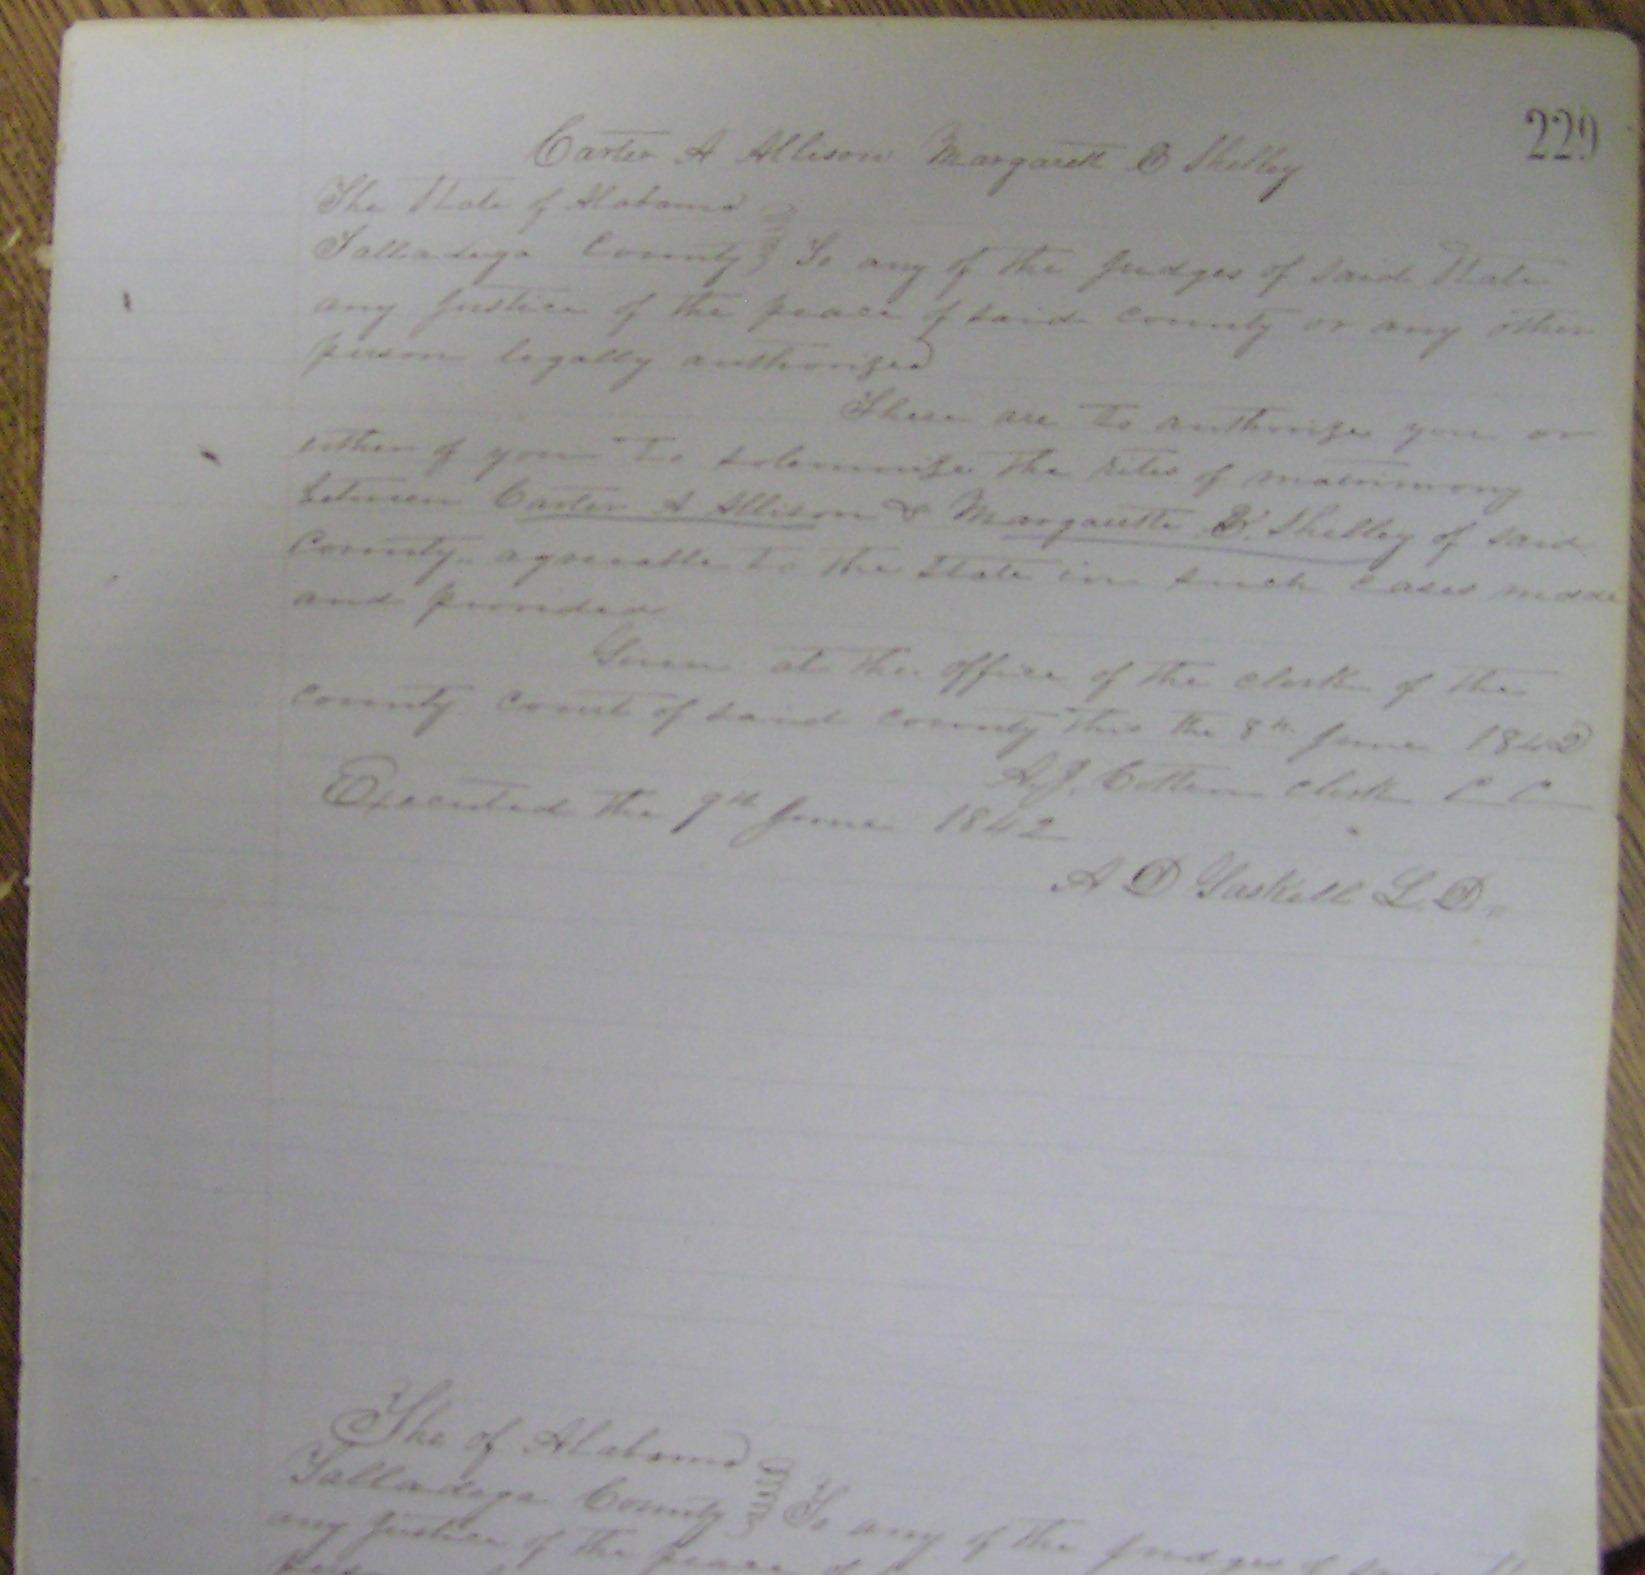 229
Carter A Allison Margarett E Shelley
The State of Alabama
Talladega County To any of the Judges of said State
any Justice of the peace of said county or any other
person legally authorized
These are to authorize you or
either of you to solemnize the rites of matrimony
between Carter A Allison & Margarette E. Shelley of said
County agreeable to the State in such cases made
and provided
Given at the office of the clerk of the
County Court of said County this the 8th June 1842
A.J. Cotten Clerk C C
Executed the 9th June 1842
A D Gaskill L.D.
The of Alabama
Talladega County To any of the Judges of
any Justice of the peace